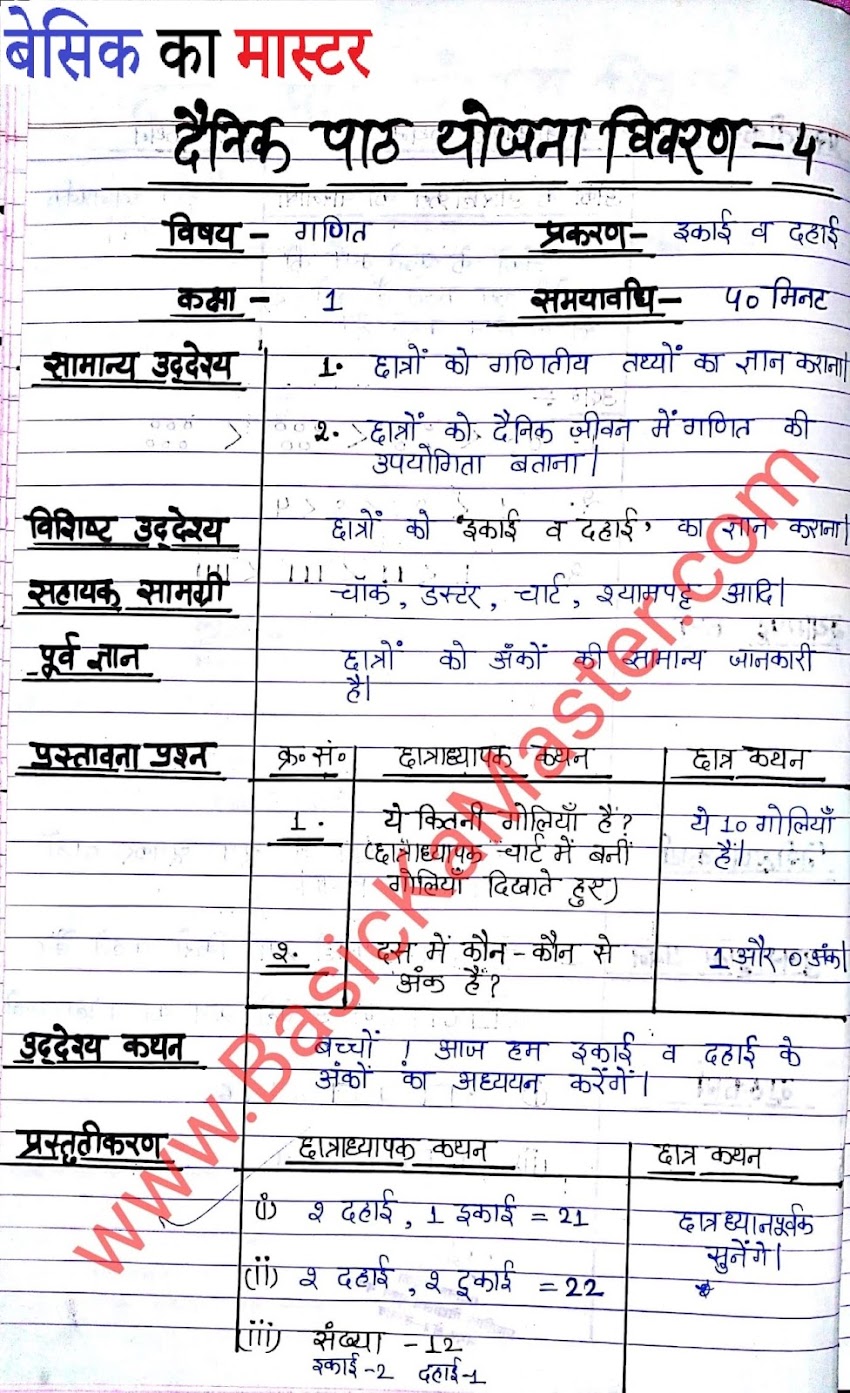 बेसिक का मास्टर
दैनिक पाठ योजना विवरण - ५
विषय - गणित प्रकरण - इकाई व दहाई
कक्षा - 1 समयावधि - ५० मिनट
सामान्य उद्‌देश्य 1. छात्रों को गणितीय तथ्यों का ज्ञान कराना।
२. छात्रों को दैनिक जीवन में गणित की
उपयोगिता बताना।
विशिष्ट उद्‌देश्य छात्रों को 'इकाई व दहाई' का ज्ञान कराना।
सहायक सामग्री चॉक, डस्टर, चार्ट, श्यामपट्ट आदि।
पूर्व ज्ञान छात्रों को अंकों की सामान्य जानकारी
है।
प्रस्तावना प्रश्न क्र॰ सं॰ छात्राध्यापक कथन छात्र कथन
1. ये कितनी गोलियाँ हैं? ये 10 गोलियाँ
(छात्राध्यापक चार्ट में बनीं हैं।
गोलियाँ दिखाते हुए)
२. दस में कौन-कौन से 1 और 0 अंक।
अंक हैं?
उद्‌देश्य कथन बच्चों ! आज हम इकाई व दहाई के
अंकों का अध्ययन करेंगें।
प्रस्तुतीकरण छात्राध्यापक कथन छात्र कथन
(i) २ दहाई, 1 इकाई = 21 छात्र ध्यानपूर्वक
सुनेंगे।
(ii) २ दहाई, २ इकाई = 22
(iii) संख्या - 12
इकाई - 2 दहाई - 1
www.BasicKaMaster.com